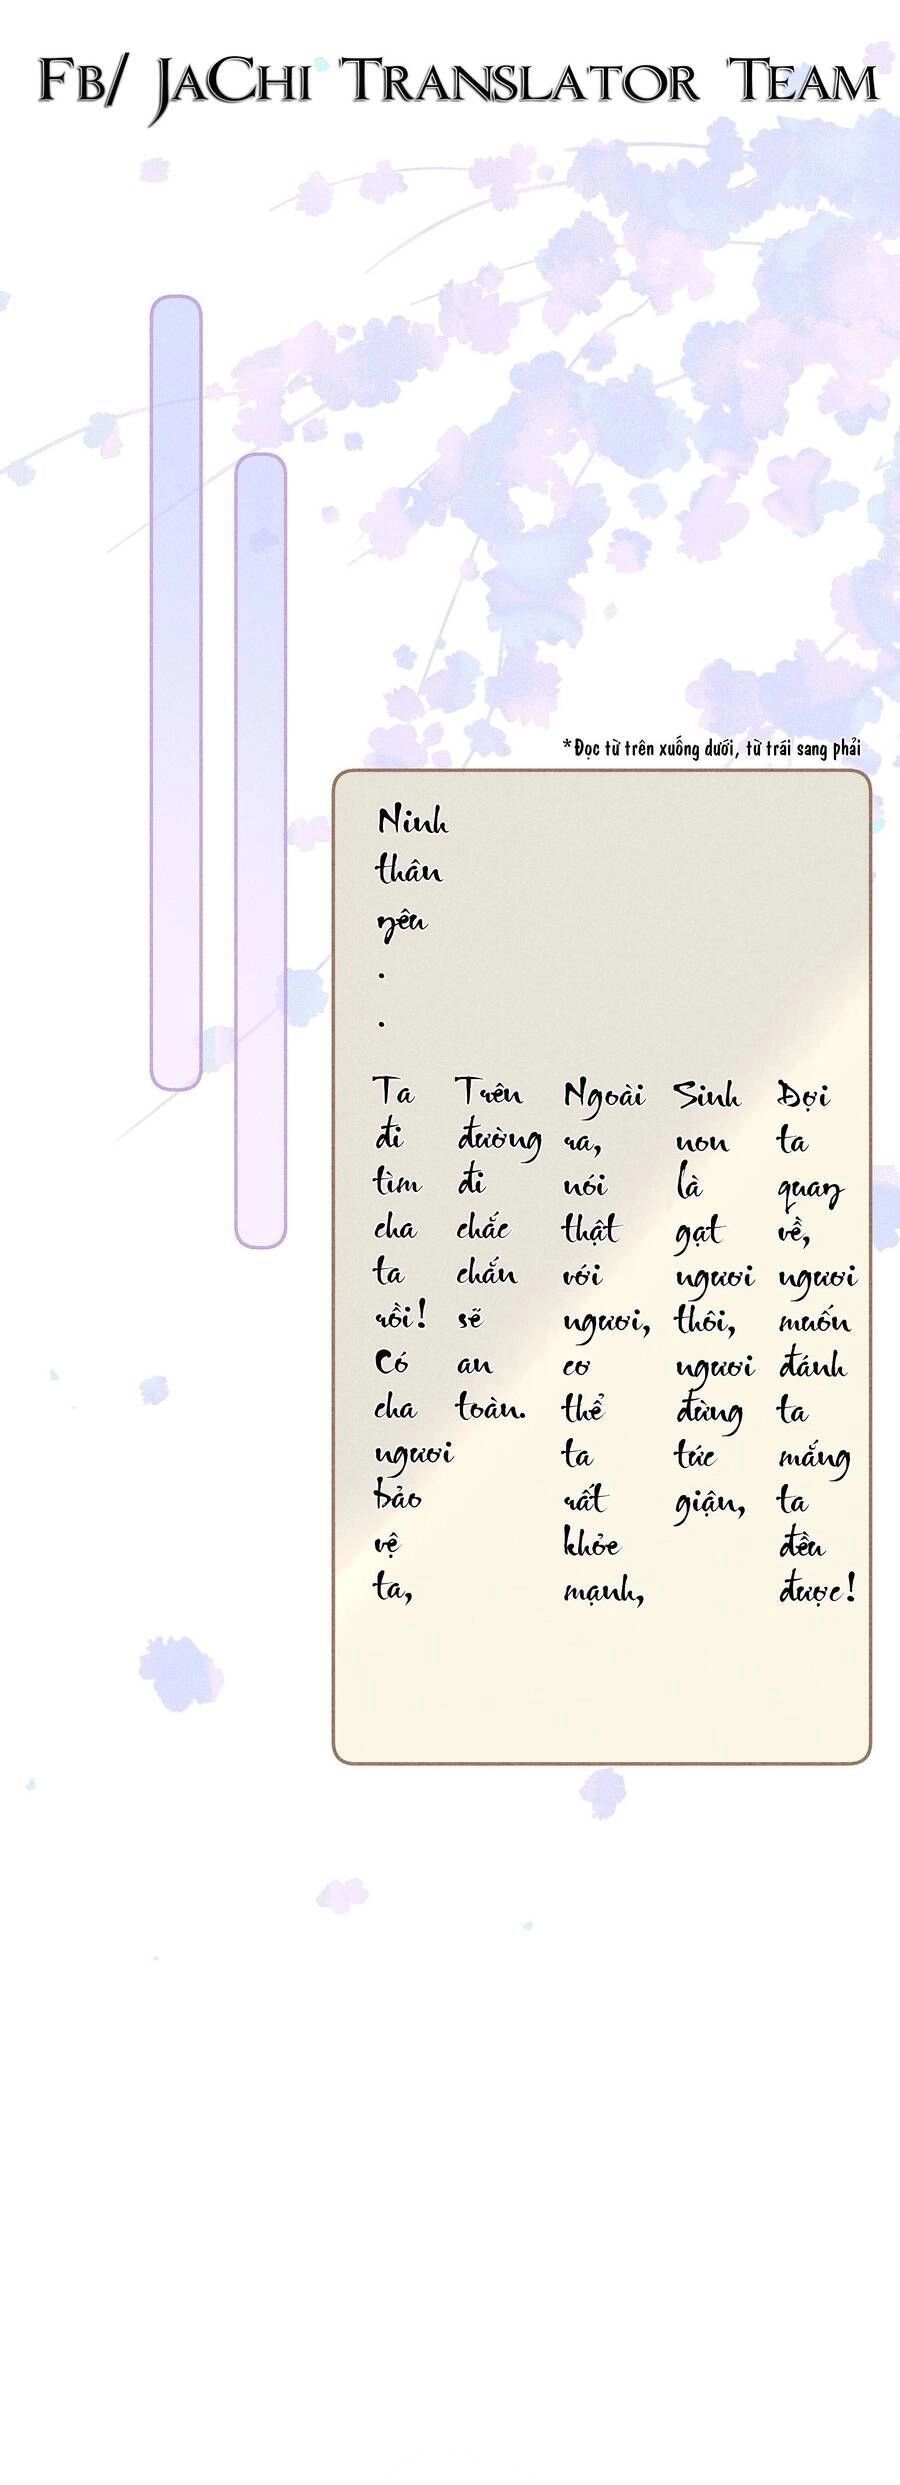 Fb/ JaChi Translator Team
*Đọc từ trên xuống dưới, từ trái sang phải
Ninh thân yêu . .
Ta đi tìm cha ta rồi! Có cha ngươi bảo vệ ta,
Trên đường đi chắc chắn sẽ an toàn.
Ngoài ra, nói thật với ngươi, cơ thể ta rất khỏe mạnh,
Sinh non là gạt ngươi thôi, ngươi đừng tức giận,
Đợi ta quay về, ngươi muốn đánh ta mắng ta đều được!